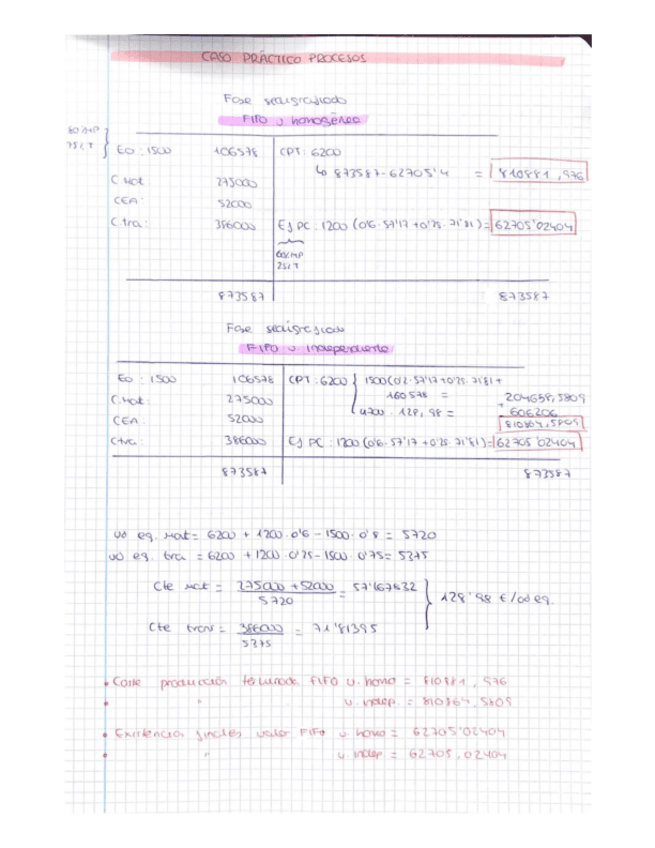 CASO PRÁCTICO PROCESOS
Fase semigrafiado
FIFO u homogéneo
80%MP
75% T
Eo : 1500 106578 CPT : 6200
↳ 873587 - 62705'4 = 810881,976
C.Mat 275000
CEA : 52000
C.tra : 386000 Ef PC : 1200 (0'6 · 57'17 + 0'25 · 71'81) = 62705'02404
60%MP
25% T
873587 873587
FIFO u. independiente
Eo : 1500 106578 CPT : 6200 1500(0'2 · 57'17 + 0'25 · 71'81) +
C.Mat : 275000 = 204658,5809
CEA : 52000 4700 · 128,98 = 606206
Ctra : 386000 Ef PC : 1200 (0'6 · 57'17 + 0'25 · 71'81) = 62705'02404
873587 873587
ud eq. mat = 6200 + 1200 · 0'6 - 1500 · 0'8 = 5720
ud eq. tra = 6200 + 1200 · 0'25 - 1500 · 0'75 = 5375
Cte mat = 275000 + 52000 / 5720 = 57'167832
128'98 €/ud eq.
Cte trans = 386000 / 5375 = 71'81395
• Coste producción terminada FIFO u. homo = 810881,976
• " u. indep. = 810864,5809
• Existencias finales valor FIFO u. homo = 62705'02404
• " u. indep = 62705,02404